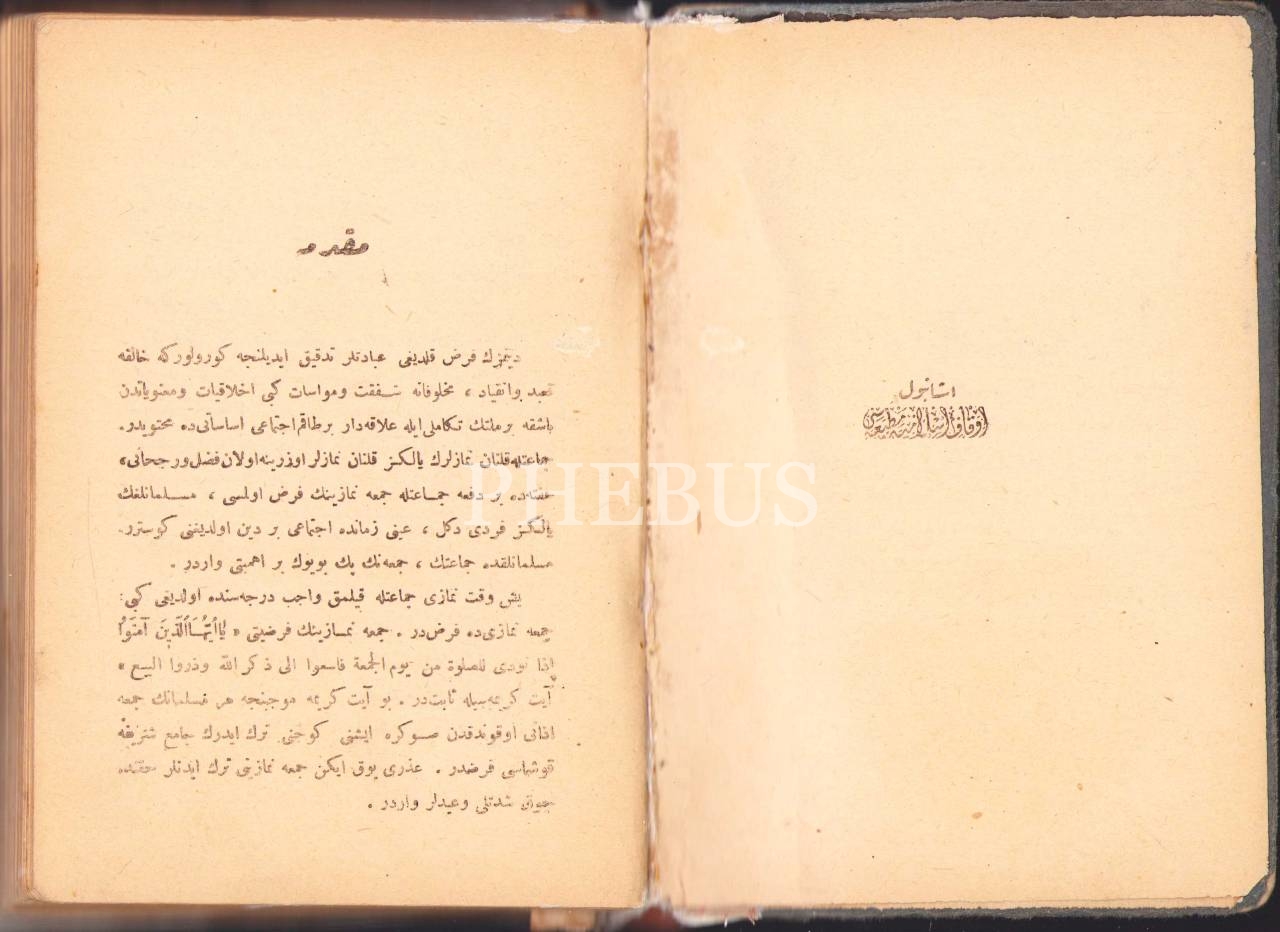 استانبول
اوقاف اسلامیه مطبعه‌سی
مقدمه
دینمزك فرض قلدیغی عبادتلر تدقیق ایدیلنجه كورولوركه خالقه
تعبد وانقیاد ، مخلوقاته شفقت ومواسات كبی اخلاقیات ومعنویاتدن
باشقه برملتك تكاملی ایله علاقه‌دار برطاقم اجتماعی اساساتی ده محتویدر.
جماعتله قلنان نمازلرك یالكز قلنان نمازلر اوزرینه اولان فضل ورجحانی،
هفته‌ده بر دفعه جماعتله جمعه نمازینك فرض اولمسی ، مسلمانلغك
یالكز فردی دكل ، عینی زمانده اجتماعی بر دین اولدیغنی كوسترر.
مسلمانلقده جماعتك ، جمعه‌نك پك بویوك بر اهمیتی واردر .
بش وقت نمازی جماعتله قیلمق واجب درجه‌سنده اولدیغی كبی:
جمعه نمازی ده فرض در . جمعه نمازینك فرضیتی « یَا اَیُّهَا الَّذینَ آمَنُوا
اِذا نودی للصلوة من یوم الجمعة فاسعوا الی ذكر الله وذروا البیع »
آیت كریمه‌سیله ثابت‌در . بو آیت كریمه موجبنجه هر مسلمانك جمعه
اذانی اوقوندقدن صوكره ایشنی كوجنی ترك ایدرك جامع شریفه
قوشماسی فرضدر . عذری یوق ایكن جمعه نمازینی ترك ایدنلر حقنده
چوق شدتلی وعیدلر واردر .
PHEBUS